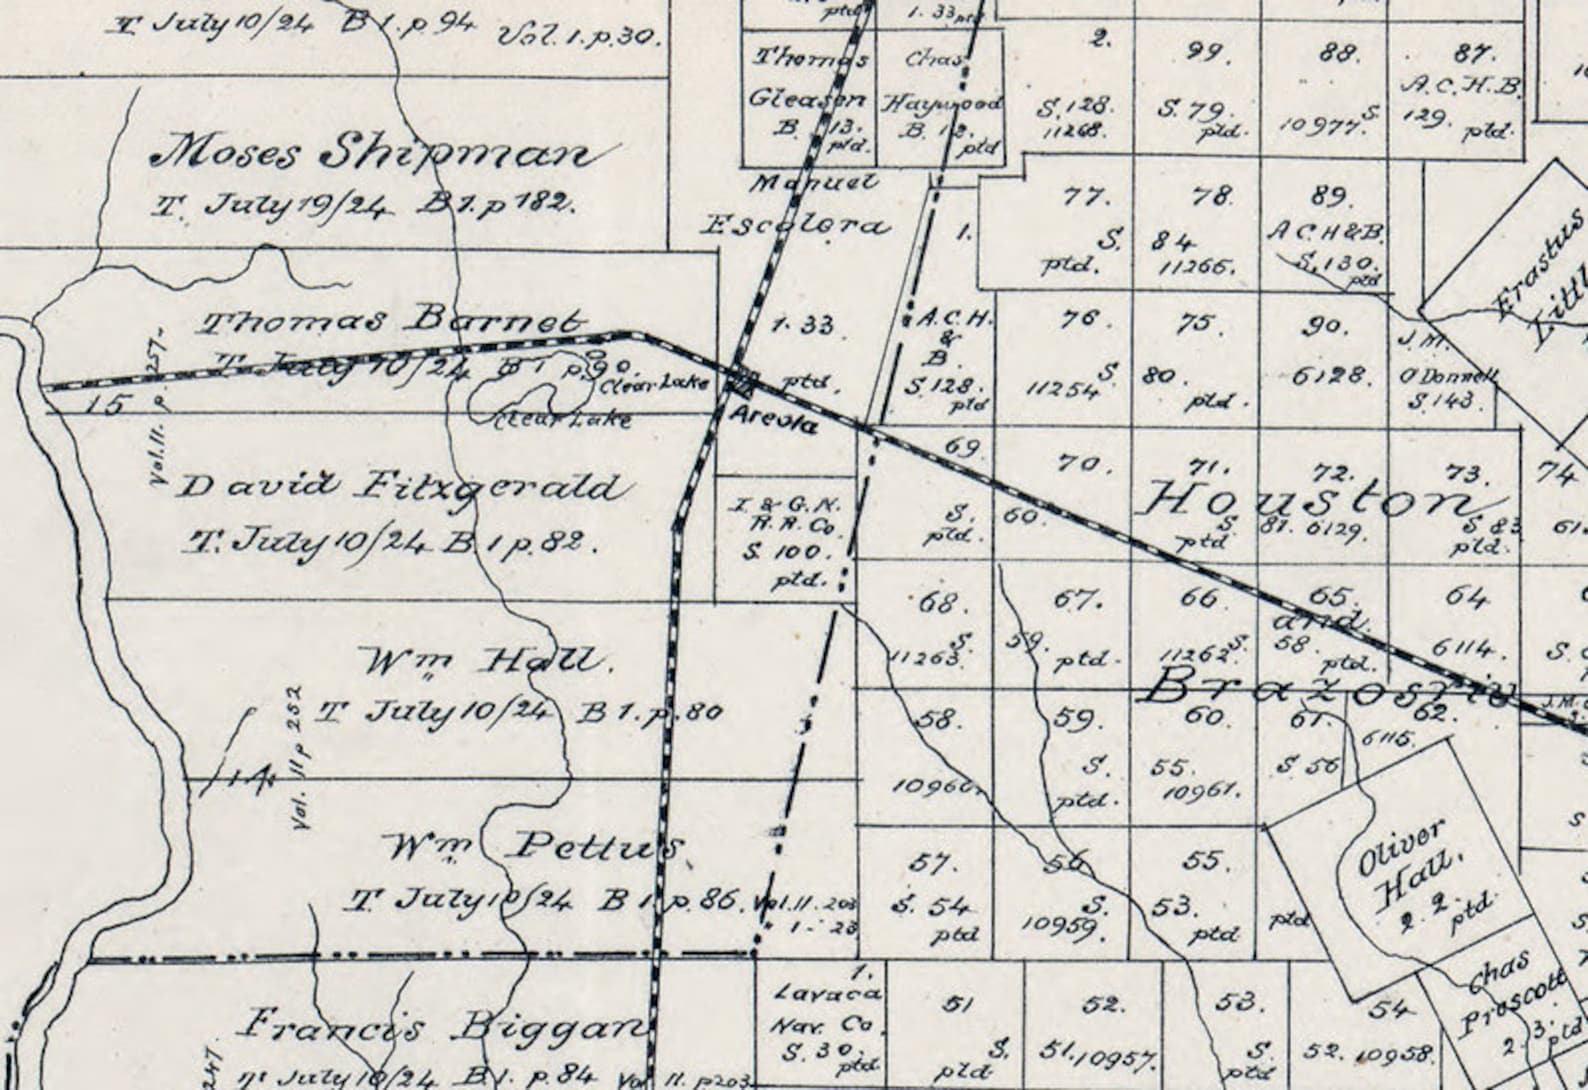 T July 10/24 B 1. p. 94 Vol. 1. p. 30.
Moses Shipman
T. July 19/24 B 1. p 182.
Thomas Barnet
T July 10/24 B 1 p. 90.
Clear Lake
Clear Lake
15
Vol. 11. p. 257-
David Fitzgerald
T. July 10/24 B 1 p. 82.
Wm Hall.
T July 10/24 B 1. p. 80
14
Vol. 11 p 252
Wm Pettus
T. July 10/24 B 1. p. 86. Vol. 11. 203
1 - 23
Francis Biggan
T. July 10/24 B 1. p. 84 Vol 11. p203
247
ptd
1. 33 ptd
Thomas
Gleasen
B. 13.
ptd.
Chas
Haywood
B. 12.
ptd
Manuel
Escolera
1.
1. 33.
ptd.
Areola
A. C. H.
&
B.
S. 128.
ptd
I & G. N.
R. R. Co.
S 100.
ptd.
2.
S. 128.
11268.
99.
S. 79.
ptd.
88.
S.
10977
87.
A. C. H. B.
129. ptd.
77.
S.
ptd.
78.
84
11266.
89.
A C. H & B.
S. 130.
ptd
Erastus
Littl
76.
S.
11254
75.
80.
ptd.
90.
6128.
J. M.
O'Donnell
S. 143.
69.
S.
ptd.
70.
60.
71.
S
ptd
72.
81. 6129.
73.
S 83
ptd.
74
61
Houston
and
Brazos riv
68.
S.
11263.
67.
59.
ptd.
66
S.
11262
65.
58.
ptd.
64
6114.
S.
58.
10960.
59.
S.
ptd.
60.
55.
10961.
61.
S 56
62.
6115.
J. M.
57.
S. 54
ptd
56
S.
10959.
55.
53.
ptd
ptd
Oliver
Hall.
2. 2.
ptd.
Chas
Proscott
2. 3. ptd
1.
Lavaca
Nav. Co.
S. 30.
ptd
51
S.
ptd
52.
51. 10957.
53.
S.
ptd
54
52. 10958.